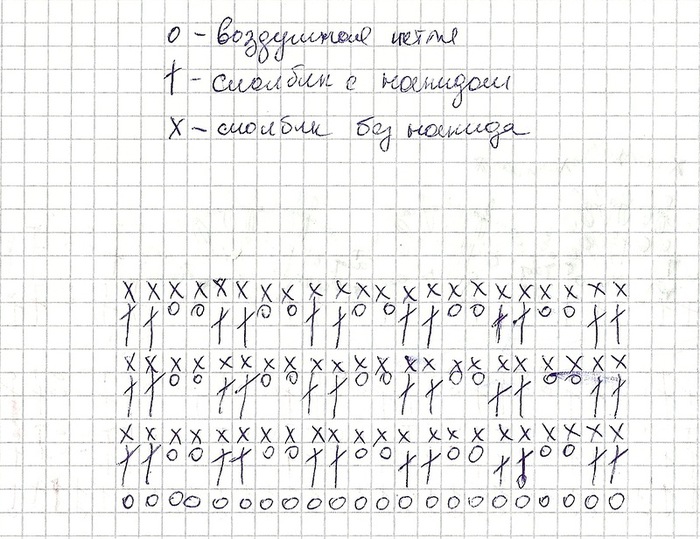 o - воздушная петля
† - столбик с накидом
x - столбик без накида